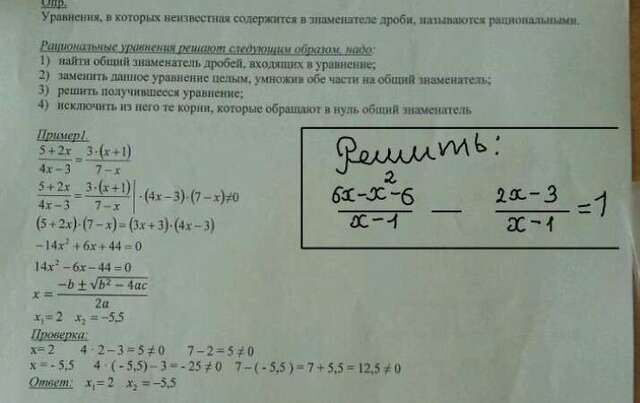 Опр.
Уравнения, в которых неизвестная содержится в знаменателе дроби, называются рациональными.
Рациональные уравнения решают следующим образом, надо:
1) найти общий знаменатель дробей, входящих в уравнение;
2) заменить данное уравнение целым, умножив обе части на общий знаменатель;
3) решить получившееся уравнение;
4) исключить из него те корни, которые обращают в нуль общий знаменатель
Пример1.
(5+2x)/(4x−3) = (3·(x+1))/(7−x)
(5+2x)/(4x−3) = (3·(x+1))/(7−x) | ·(4x−3)·(7−x)≠0
(5+2x)·(7−x)=(3x+3)·(4x−3)
−14x²+6x+44=0
14x²−6x−44=0
x = (−b±√(b²−4ac))/(2a)
x₁=2 x₂=−5,5
Проверка:
x= 2 4 · 2 – 3 = 5 ≠ 0 7 – 2 = 5 ≠ 0
x = - 5,5 4 · ( - 5,5) – 3 = - 25 ≠ 0 7 – ( - 5,5 ) = 7 + 5,5 = 12,5 ≠ 0
Ответ: x₁=2 x₂=−5,5
Решить:
(6x−x²−6)/(x−1) − (2x−3)/(x−1) = 1